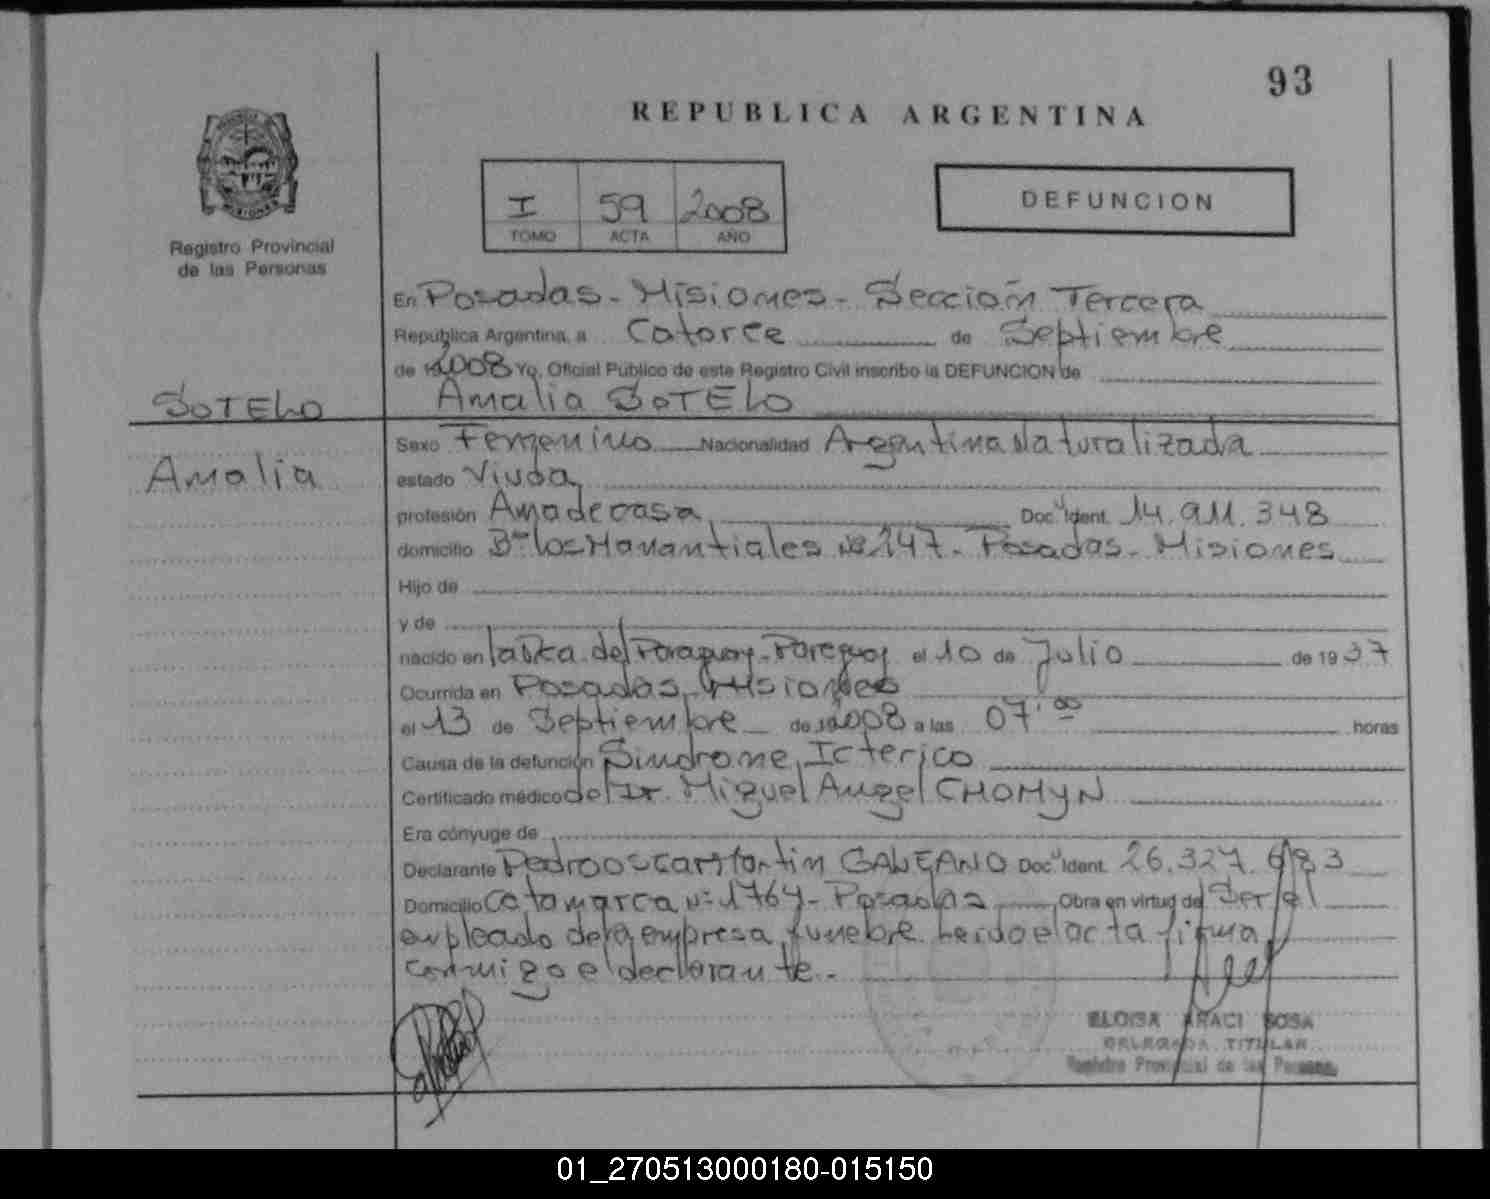 93
REPUBLICA ARGENTINA
I 59 2008
TOMO ACTA AÑO
DEFUNCION
Registro Provincial
de las Personas
En Posadas - Misiones - Sección Tercera
República Argentina, a Catorce de Septiembre
de 2008 Yo, Oficial Público de este Registro Civil inscribo la DEFUNCION de
SOTELO
Amalia SOTELO
Amalia
Sexo Femenino Nacionalidad Argentina Naturalizada
estado Viuda
profesión Ama de casa Doc. Ident. 14.911.348
domicilio Bº los Manantiales Nº 147 - Posadas - Misiones
Hijo de
y de
nacido en la Rca. del Paraguay - Paraguay el 10 de Julio de 1937
Ocurrida en Posadas, Misiones
el 13 de Septiembre de 2008 a las 07'00 horas
Causa de la defunción Sindrome Icterico
Certificado médico del Dr. Miguel Angel CHOMYN
Era cónyuge de
Declarante Pedro Oscar Martin GALEANO Doc. Ident. 26.327.683
Domicilio Catamarca Nº 1764 - Posadas Obra en virtud de Ser el
empleado de la empresa funebre. Leido el acta firma
conmigo el declarante.-
ELOISA ARACI SOSA
DELEGADA TITULAR
Registro Provincial de las Personas
01_270513000180-015150